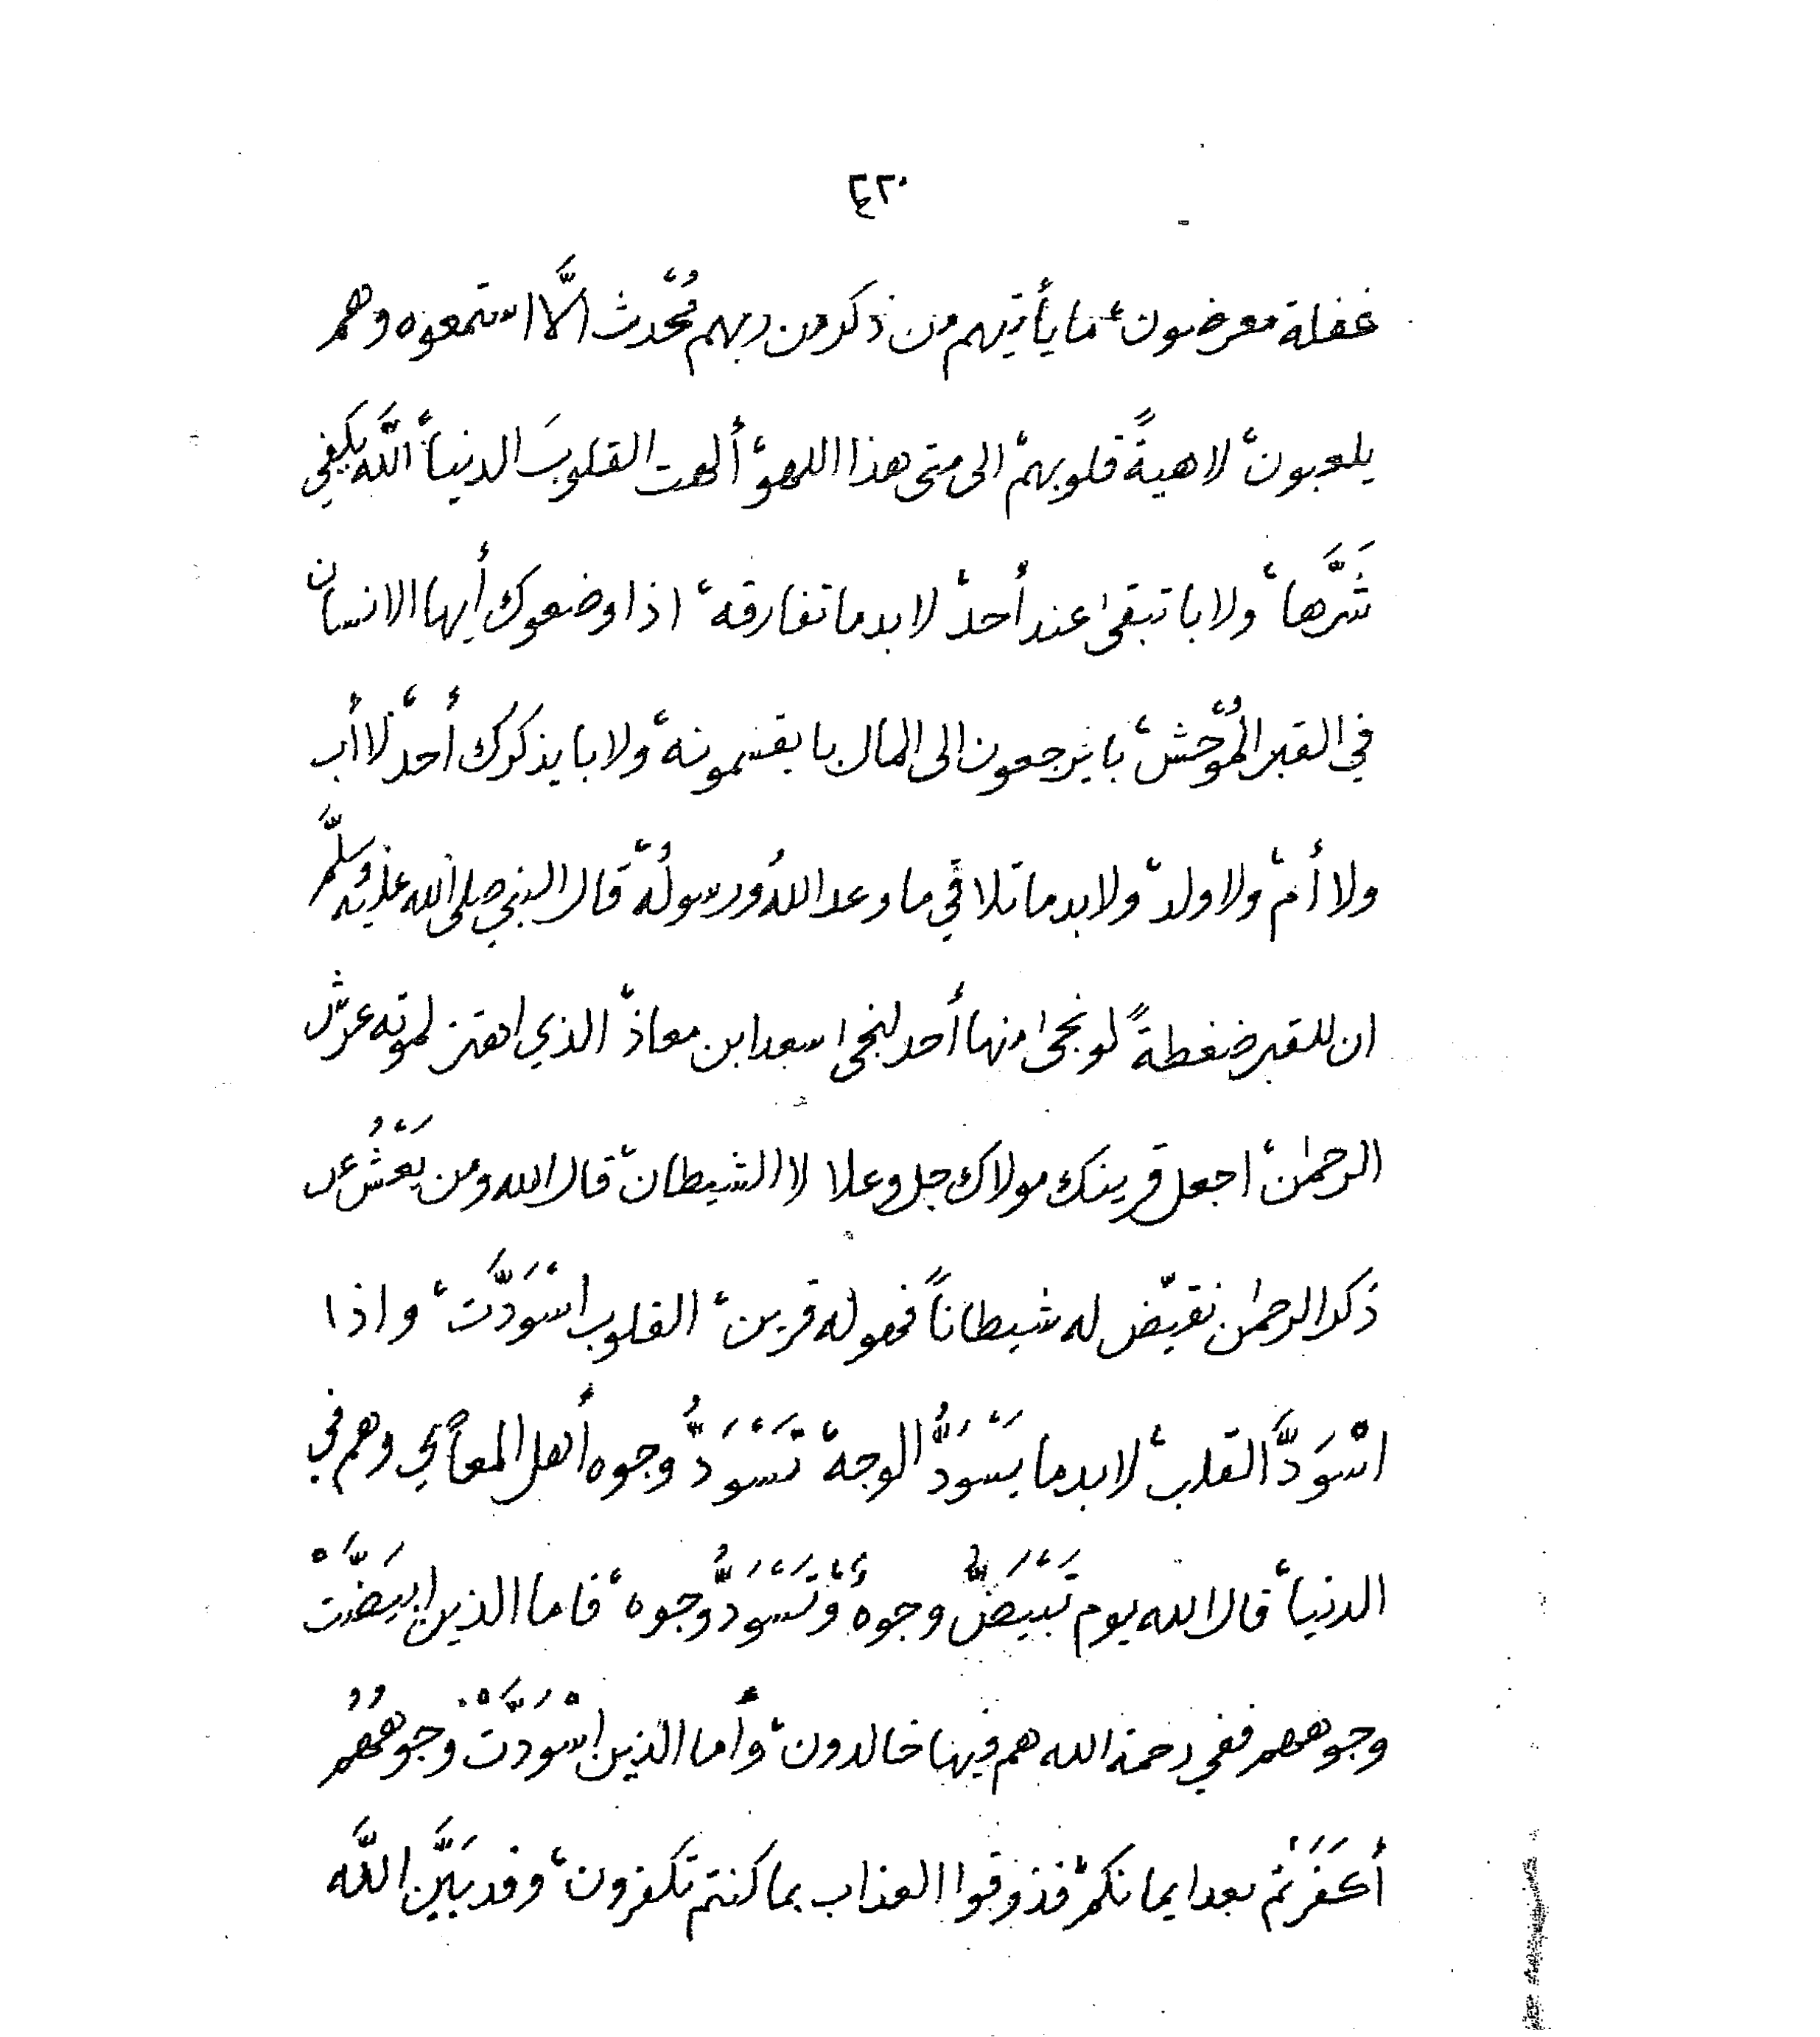 ٤٢٠
غفلة معرضون، ما يأتيهم من ذكر من ربهم مُحْدث الَّا استمعوه وهم
يلعبون، لاهيةً قلوبهم، الى متى هذا اللهو، ألهت القلوبَ الدنيا، اللَّه يَكفي
شَرَّها، ولا با تبقىٰ عند أحد، لا بد ما تفارقه، اذا وضعوك أيها الانسان
في القبر المُوْحش، با يرجعون الى المال با يقسمونه، ولا با يذكرُك أحد، لا أب
ولا أم، ولا ولد، ولا بد ما تلاقي ما وعد اللهُ ورسولُه، قال النبي صلى الله عليه وسلَّم
ان للقبر ضغطةً لو نجىٰ منها أحد لنجىٰ سعد ابن معاذ، الذي اهتز لموته عرش
الرحمٰن، اجعل قرينك مولاك جل وعلا لا الشيطان، قال الله ومن يَعْشُ عن
ذكر الرحمٰن نقيّض له شيطاناً فهو له قرين، القلوب اسْوَدَّت، واذا
اسْوَدَّ القلب، لا بد ما يَسْوَدُّ الوجه، تَسْوَدُّ وجوه أهل المعاصي وهم في
الدنيا، قال الله يوم تَبْيَضُّ وجوهٌ وَتَسْوَدُّ وجوه، فاما الذين ابيَضَّتْ
وجوههم ففي رحمة الله هم فيها خالدون، وأما الذين اسْوَدَّتْ وجوهُهُم
أكَفَرْتُم بعد ايمانكم، فذوقوا العذاب بما كنتم تكفرون، وقد بَيَّن اللَّه